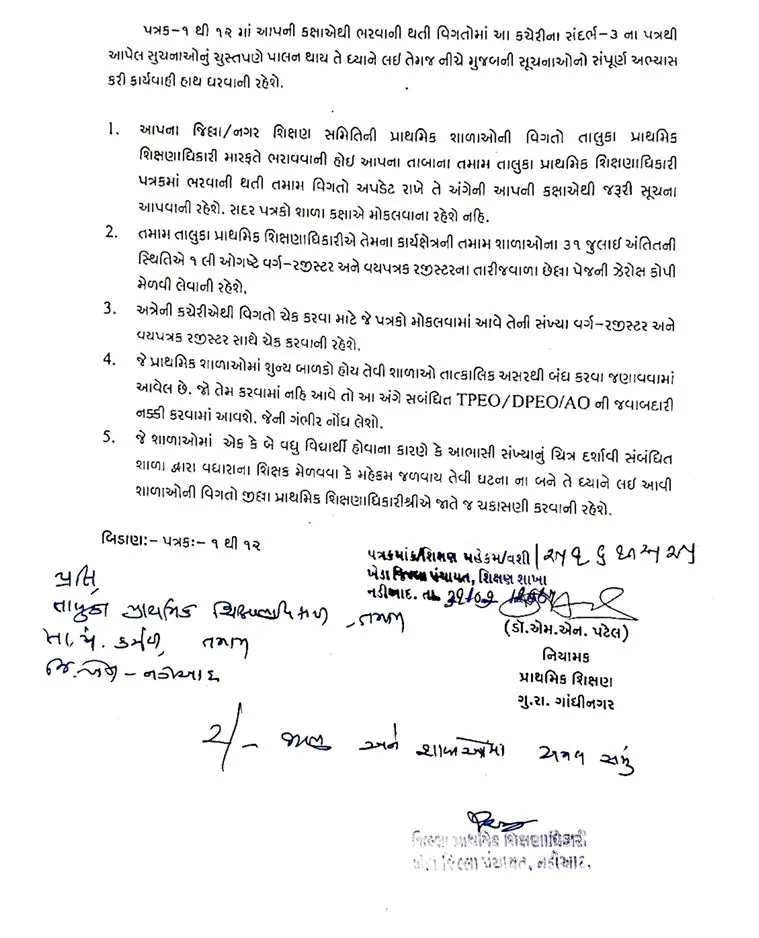 પત્રક-૧ થી ૧૨ માં આપની કક્ષાએથી ભરવાની થતી વિગતોમાં આ કચેરીના સંદર્ભ-૩ ના પત્રથી
આપેલ સુચનાઓનું ચુસ્તપણે પાલન થાય તે ધ્યાને લઇ તેમજ નીચે મુજબની સૂચનાઓનો સંપૂર્ણ અભ્યાસ
કરી કાર્યવાહી હાથ ધરવાની રહેશે.
1. આપના જિલ્લા/નગર શિક્ષણ સમિતિની પ્રાથમિક શાળાઓની વિગતો તાલુકા પ્રાથમિક
શિક્ષણાધિકારી મારફતે ભરાવવાની હોઇ આપના તાબાના તમામ તાલુકા પ્રાથમિક શિક્ષણાધિકારી
પત્રકમાં ભરવાની થતી તમામ વિગતો અપડેટ રાખે તે અંગેની આપની કક્ષાએથી જરૂરી સૂચના
આપવાની રહેશે. સદર પત્રકો શાળા કક્ષાએ મોકલવાના રહેશે નહિ.
2. તમામ તાલુકા પ્રાથમિક શિક્ષણાધિકારીએ તેમના કાર્યક્ષેત્રની તમામ શાળાઓના ૩૧ જુલાઇ અંતિતની
સ્થિતિએ ૧ લી ઓગષ્ટે વર્ગ-રજીસ્ટર અને વયપત્રક રજીસ્ટરના તારીજવાળા છેલ્લા પેજની ઝેરોક્ષ કોપી
મેળવી લેવાની રહેશે.
3. અત્રેની કચેરીએથી વિગતો ચેક કરવા માટે જે પત્રકો મોકલવામાં આવે તેની સંખ્યા વર્ગ-રજીસ્ટર અને
વયપત્રક રજીસ્ટર સાથે ચેક કરવાની રહેશે.
4. જે પ્રાથમિક શાળાઓમાં શુન્ય બાળકો હોય તેવી શાળાઓ તાત્કાલિક અસરથી બંધ કરવા જણાવવામાં
આવેલ છે. જો તેમ કરવામાં નહિ આવે તો આ અંગે સબંધિત TPEO/DPEO/AO ની જવાબદારી
નક્કી કરવામાં આવશે. જેની ગંભીર નોંધ લેશો.
5. જે શાળાઓમાં એક કે બે વધુ વિદ્યાર્થી હોવાના કારણે કે આભાસી સંખ્યાનું ચિત્ર દર્શાવી સંબંધિત
શાળા દ્વારા વધારાના શિક્ષક મેળવવા કે મહેકમ જળવાય તેવી ઘટના ના બને તે ધ્યાને લઇ આવી
શાળાઓની વિગતો જીલ્લા પ્રાથમિક શિક્ષણાધિકારીશ્રીએ જાતે જ ચકાસણી કરવાની રહેશે.
બિડાણ:- પત્રક:- ૧ થી ૧૨
પત્રકમાંક/શિક્ષણ મહેકમ/વશી/
ખેડા જિલ્લા પંચાયત, શિક્ષણ શાખા
નડીઆદ. તા.
પ્રતિ,
તાલુકા પ્રાથમિક શિક્ષણાધિકારી, તમામ
તા.પં. કચેરી, તમામ
જિ.ખેડા - નડીઆદ
(ડૉ.એમ.એન. પટેલ)
નિયામક
પ્રાથમિક શિક્ષણ
ગુ.રા. ગાંધીનગર
૨/- જાણ અને શાળાઓમાં અમલ સારૂ
જિલ્લા પ્રાથમિક શિક્ષણાધિકારી
ખેડા જિલ્લા પંચાયત, નડીઆદ.